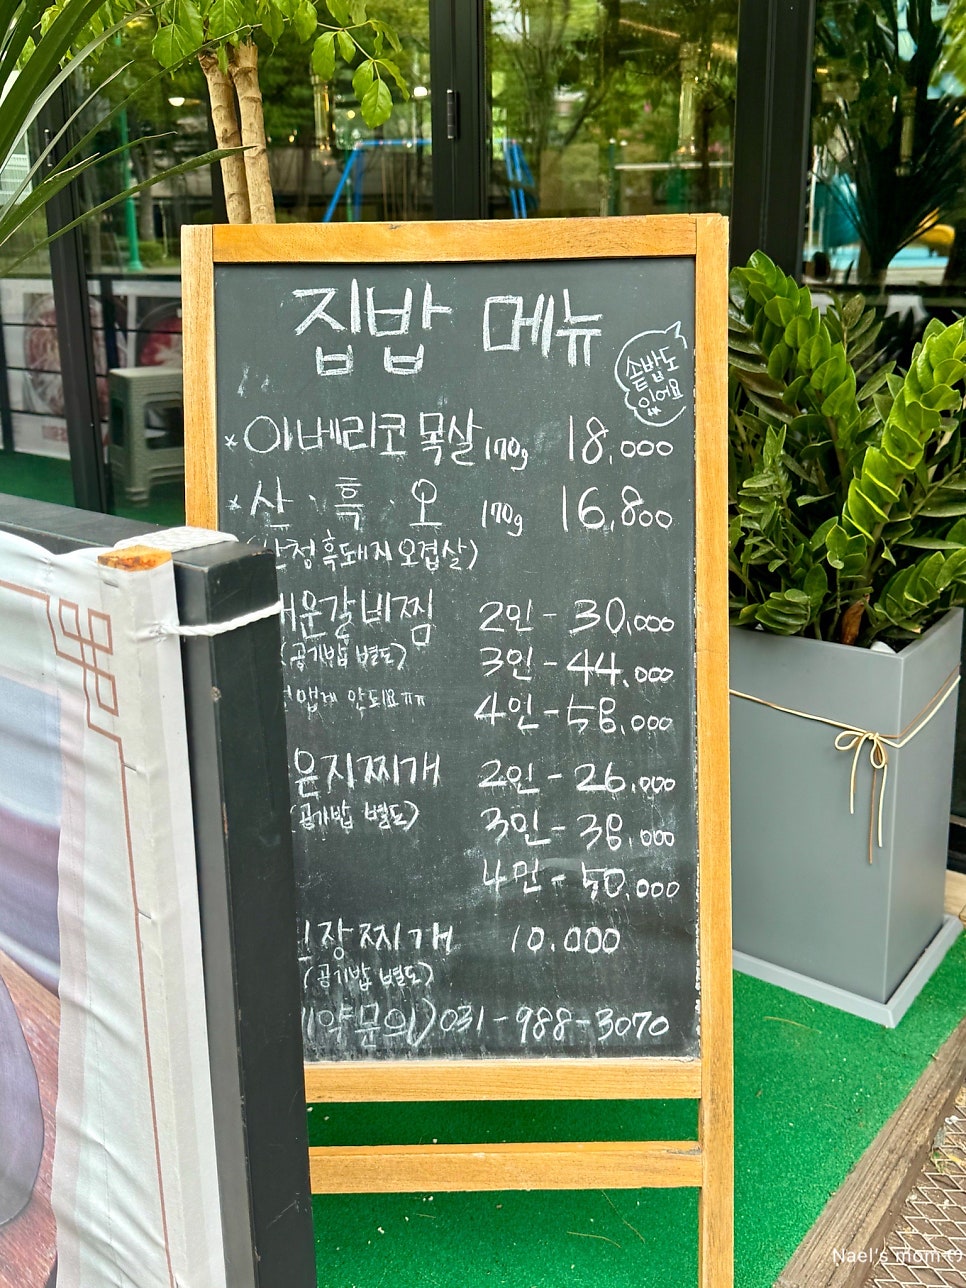 집밥 메뉴
솥밥도
있어요
* 이베리코 목살 170g 18,000
* 산 · 흑 · 오 170g 16,800
(산청 흑돼지 오겹살)
매운갈비찜 2인 - 30,000
(공기밥 별도) 3인 - 44,000
안맵게 안되요ㅠㅠ 4인 - 58,000
묵은지찌개 2인 - 26,000
(공기밥 별도) 3인 - 38,000
4인 - 50,000
된장찌개 10,000
(공기밥 별도)
예약문의) 031-988-3070
Nael's mom